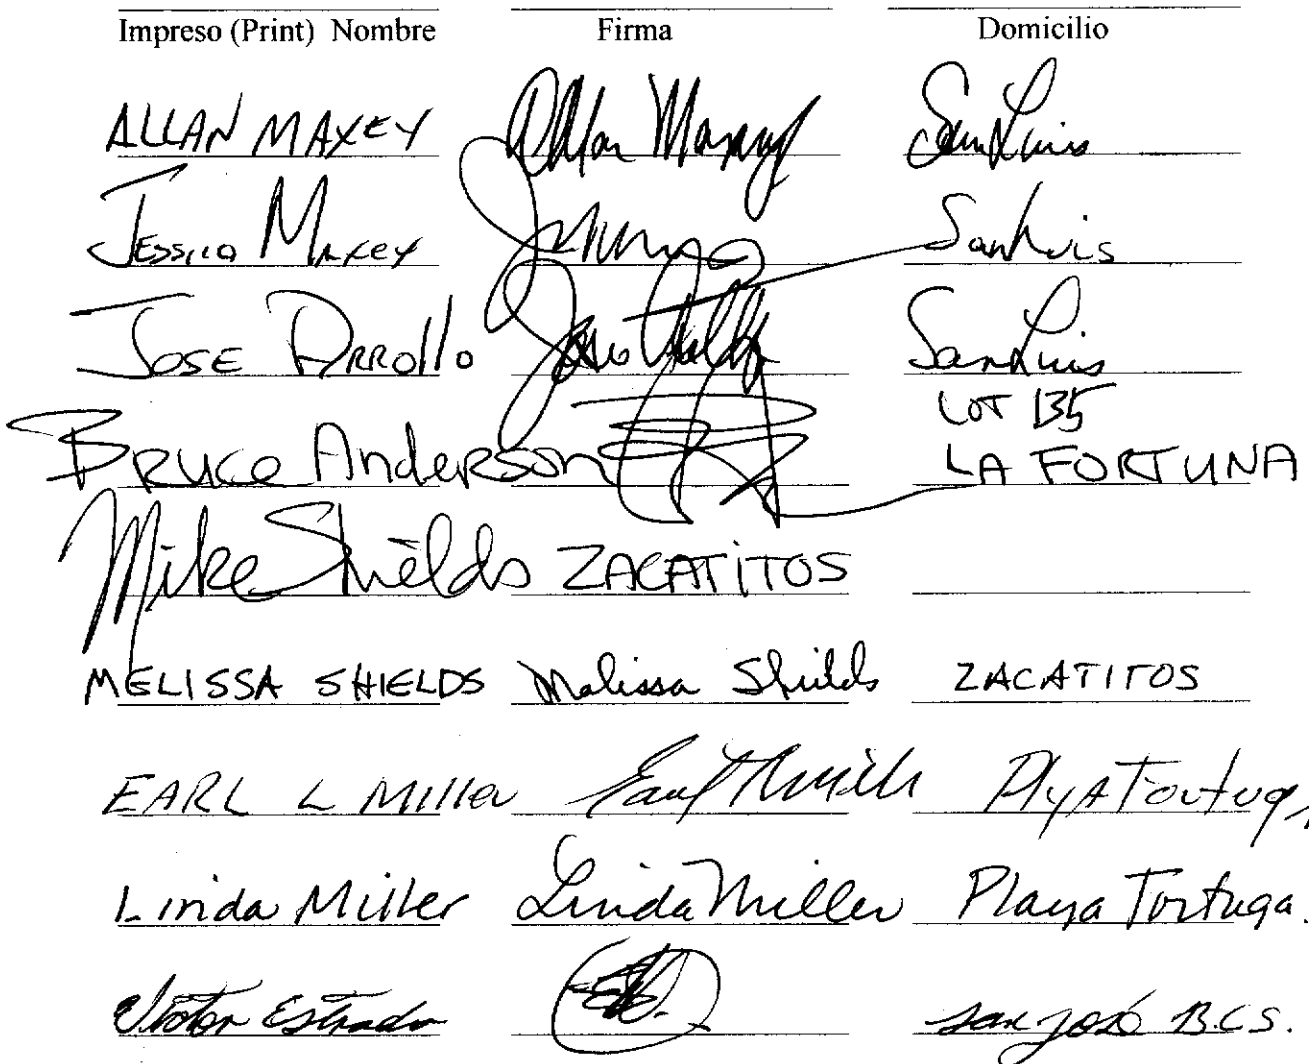 Impreso (Print) Nombre Firma Domicilio
ALLAN MAXEY Allan Maxey San Luis
JESSICA MAXEY San Luis
JOSE ARROllO Jose San Luis
LOT 135
BRUCE AndeRSon LA FORTUNA
Mike Shields ZACATiTOS
MELISSA SHIELDS Melissa Shields ZACATITOS
EARL L MIller Earl Miller PlyA Tortuga
Linda Miller Linda Miller Playa Tortuga.
Victor Estrada San José B.C.S.